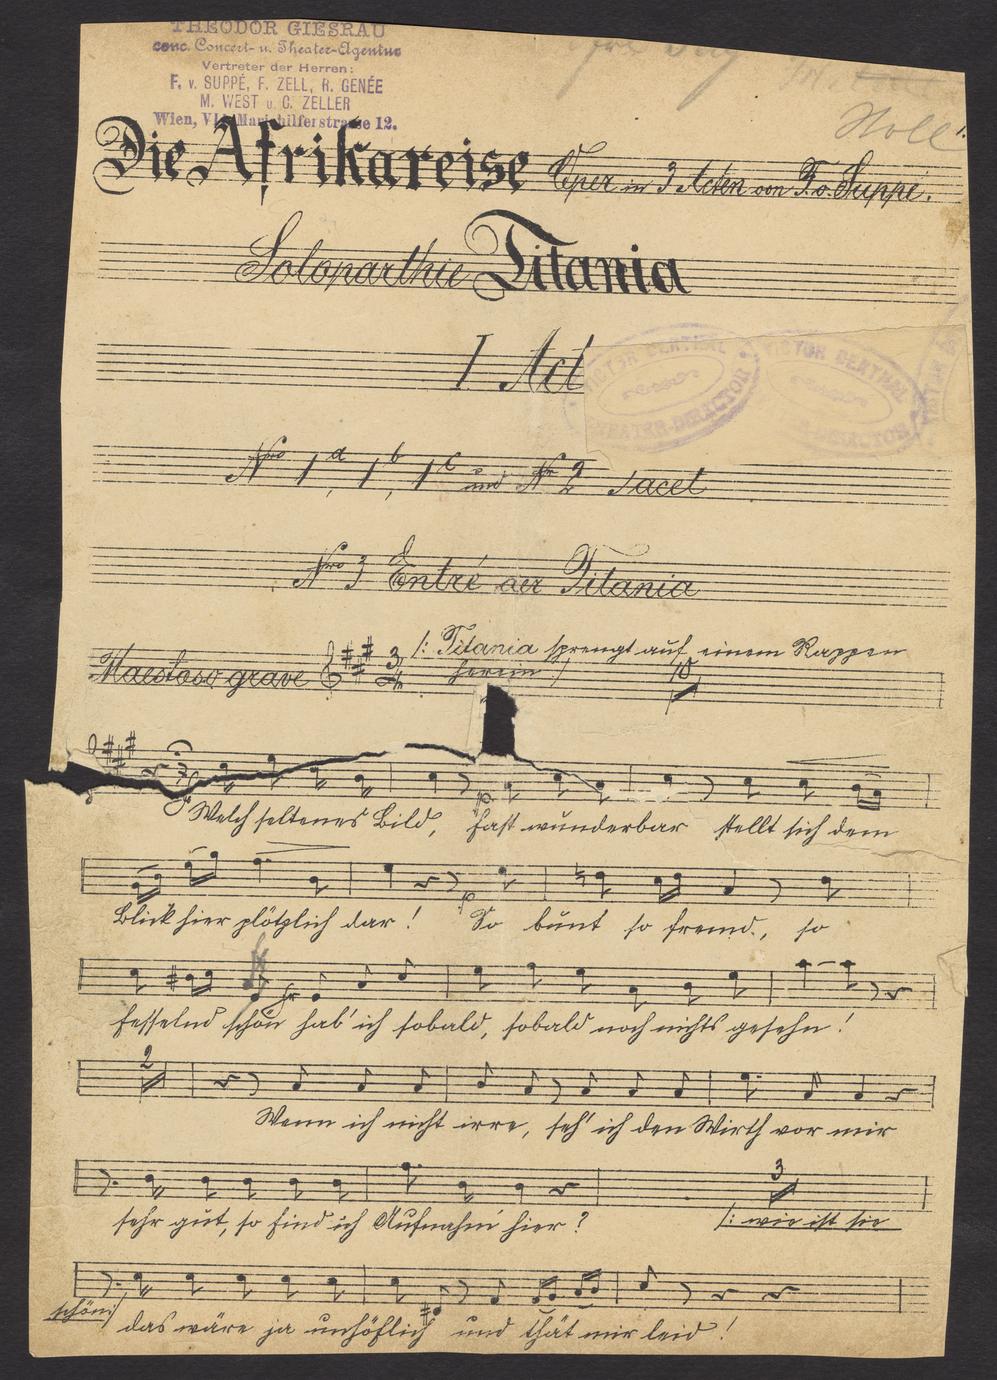 THEODOR GIESRAU
conc. Concert- u. Theater-Agentur
Vertreter der Herren:
F. v. SUPPÉ, F. ZELL, R. GENÉE
M. WEST u. C. ZELLER
Wien, VII. Mariahilferstrasse 12.
Noll
Die Afrikareise Oper in 3 Acten von F. v. Suppé.
Soloparthie Titania
I Act
VICTOR BERTHAL THEATER-DIRECTOR
VICTOR BERTHAL DIRECTOR
Nro 1a, 1b, 1c und Nr 2 tacet
Nro 3 Entré der Titania
Maestoso grave 3/4 /: Titania sprengt auf einem Rappen
herein :/ 10
Welch seltenes Bild, fast wunderbar stellt sich dem
p
Blick hier plötzlich dar! So bunt so fremd, so
p
fesselnd schön hab' ich sobald, sobald noch nichts gesehn!
2
Wenn ich nicht irre, seh' ich den Wirth vor mir
3
sehr gut, so find ich Aufnahm' hier? /: wie ist sie
schön :/ das wäre ja unhöflich und thät mir leid!